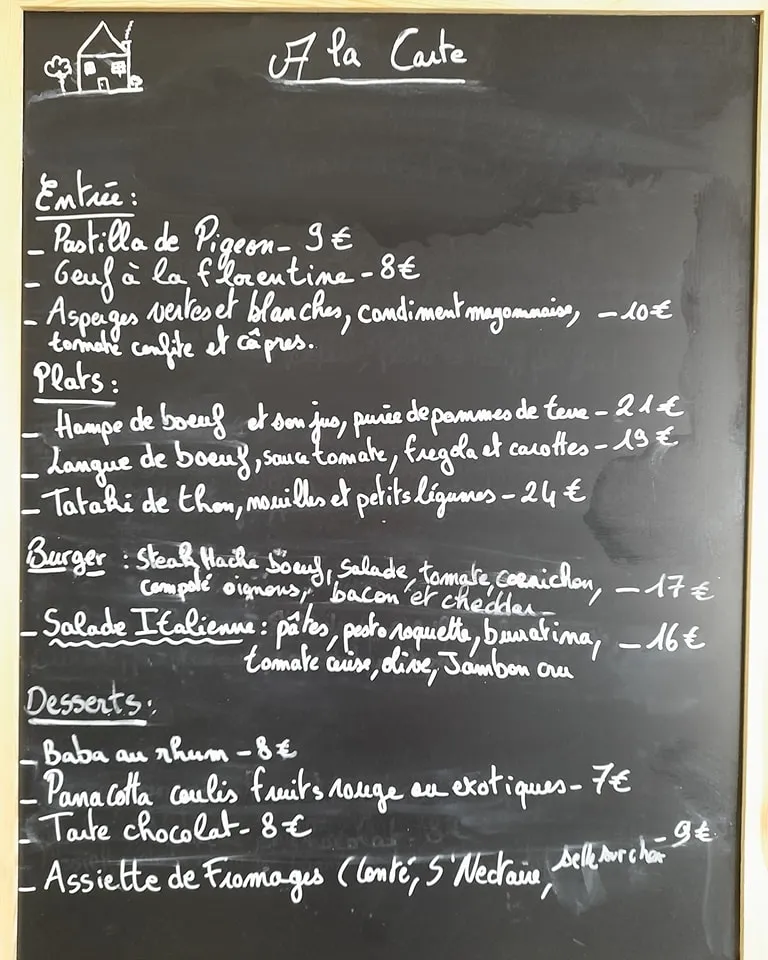 A la Carte
Entrée :
- Pastilla de Pigeon - 9 €
- Oeuf à la florentine - 8 €
- Asperges vertes et blanches, condiment mayonnaise, - 10 €
tomate confite et câpres.
Plats :
- Hampe de boeuf et son jus, purée de pommes de terre - 21 €
- Langue de boeuf, sauce tomate, fregola et carottes - 19 €
- Tataki de thon, nouilles et petits légumes - 24 €
Burger : Steak Haché Boeuf, Salade, tomate, cornichon, - 17 €
compoté oignons, bacon et cheddar -
- Salade Italienne : pâtes, pesto roquette, burratina, - 16 €
tomate cerise, olive, Jambon cru
Desserts :
- Baba au rhum - 8 €
- Panacotta coulis fruits rouge ou exotiques - 7 €
- Tarte chocolat - 8 €
- Assiette de Fromages (Conté, S'Nectaire, Selle sur cher - 9 €